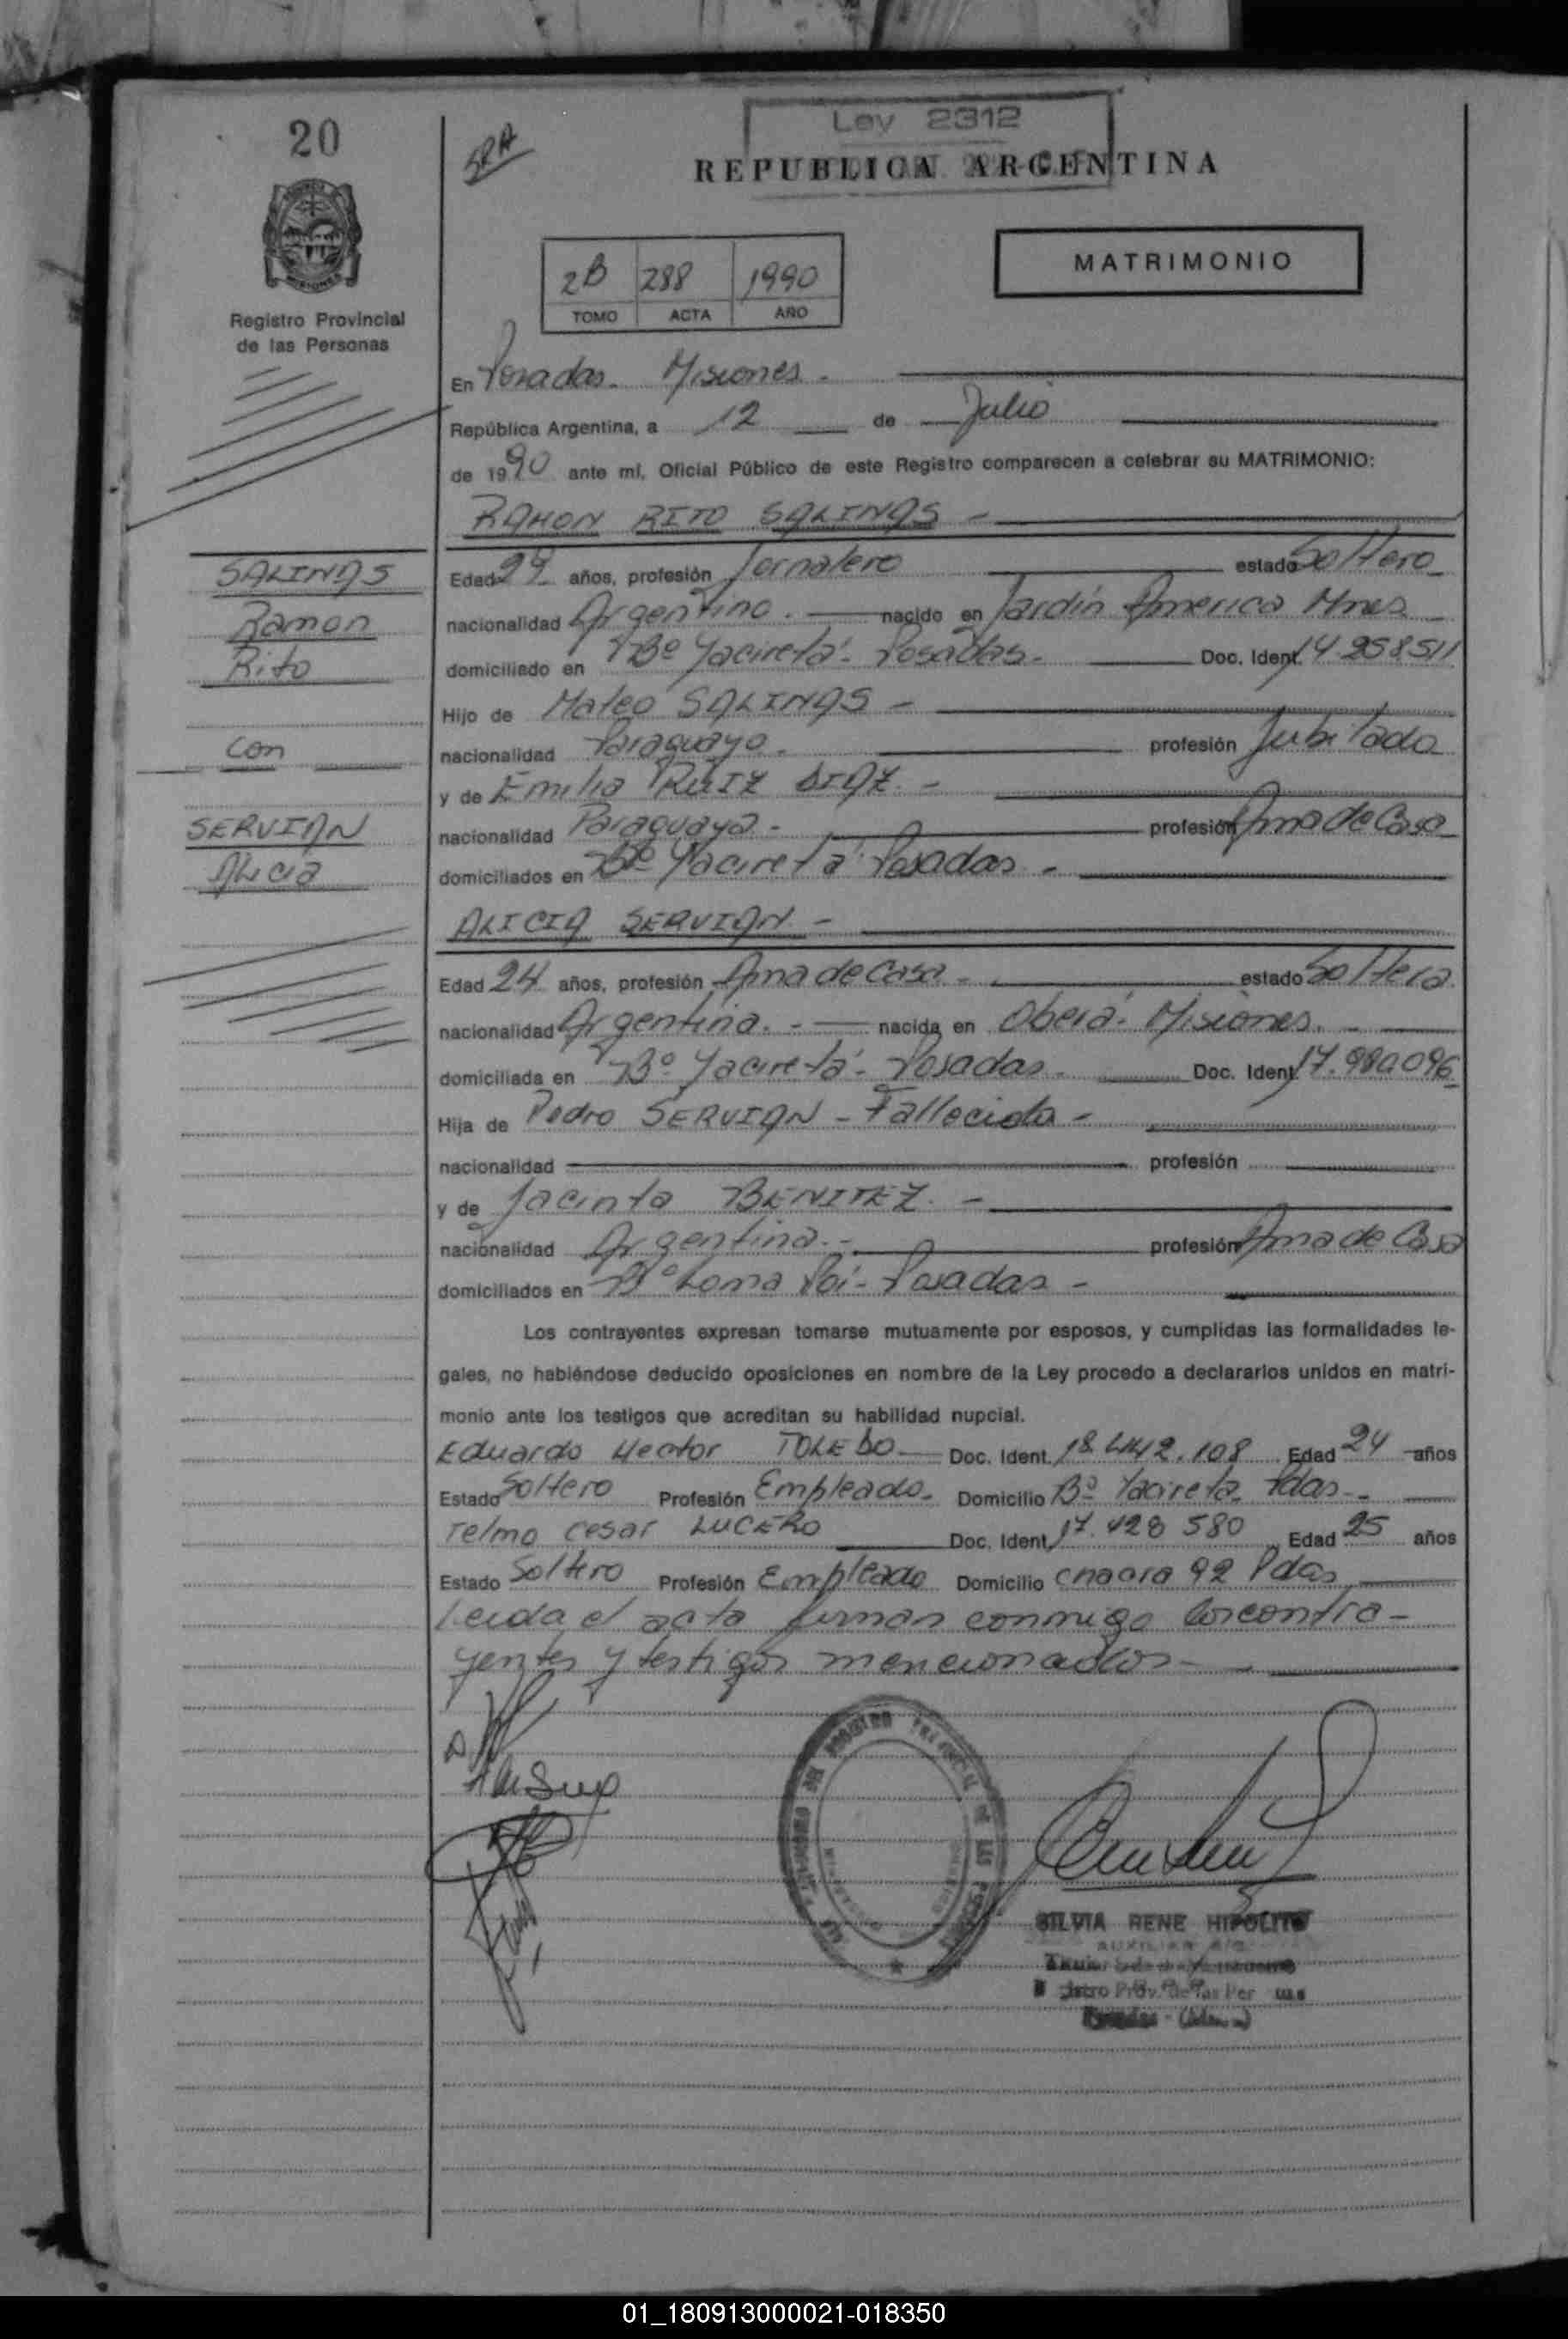 20
SRA
Ley 2312
REPUBLICA ARGENTINA
2B 288 1990
TOMO ACTA AÑO
MATRIMONIO
Registro Provincial
de las Personas
En Posadas. Misiones.
República Argentina, a 12 de Julio
de 1990 ante mí, Oficial Público de este Registro comparecen a celebrar su MATRIMONIO:
RAMON RITO SALINAS -
SALINAS
Ramon
Rito
con
SERVIAN
Alicia
Edad 29 años, profesión Jornalero estado Soltero
nacionalidad Argentino. nacido en Jardín America Mnes
domiciliado en Bº Yacireta - Posadas. Doc. Ident. 14.258511
Hijo de Mateo SALINAS -
nacionalidad Paraguayo. profesión Jubilado
y de Emilia RUIZ DIAZ. -
nacionalidad Paraguaya - profesión Ama de Casa
domiciliados en Bº Yacireta Posadas -
ALICIA SERVIAN -
Edad 24 años, profesión Ama de Casa - estado Soltera
nacionalidad Argentina. - nacida en Oberá - Misiones.
domiciliada en Bº Yacireta - Posadas. Doc. Ident. 17.980096
Hija de Pedro SERVIAN - Fallecido -
nacionalidad profesión
y de Jacinta BENITEZ. -
nacionalidad Argentina. - profesión Ama de Casa
domiciliados en Bº Loma Poi - Posadas -
Los contrayentes expresan tomarse mutuamente por esposos, y cumplidas las formalidades le-
gales, no habiéndose deducido oposiciones en nombre de la Ley procedo a declararlos unidos en matri-
monio ante los testigos que acreditan su habilidad nupcial.
Eduardo Hector TOLEDO Doc. Ident. 18.442.108 Edad 24 años
Estado Soltero Profesión Empleado. Domicilio Bº Yacireta Pdas -
Telmo Cesar LUCERO Doc. Ident. 17.428 580 Edad 25 años
Estado Soltero Profesión Empleado Domicilio chacra 92 Pdas
Leida el acta firman conmigo los contra-
yentes y testigos mencionados -
SILVIA RENE HIPOLITO
AUXILIAR
Prov. de las Per
01_180913000021-018350